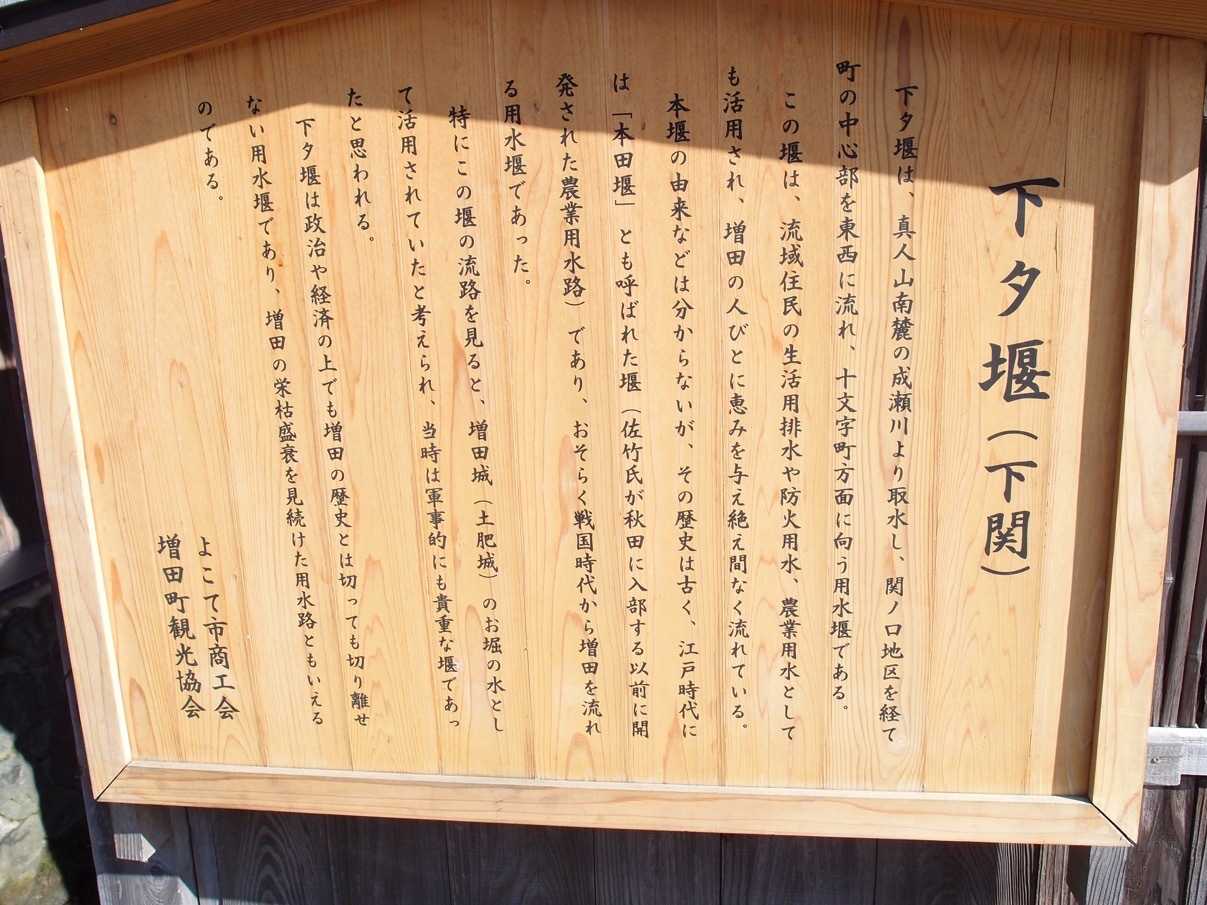 下タ堰（下関）
下タ堰は、真人山南麓の成瀬川より取水し、関ノ口地区を経て
町の中心部を東西に流れ、十文字町方面に向う用水堰である。
この堰は、流域住民の生活用排水や防火用水、農業用水として
も活用され、増田の人びとに恵みを与え絶え間なく流れている。
本堰の由来などは分からないが、その歴史は古く、江戸時代に
は「本田堰」とも呼ばれた堰（佐竹氏が秋田に入部する以前に開
発された農業用水路）であり、おそらく戦国時代から増田を流れ
る用水堰であった。
特にこの堰の流路を見ると、増田城（土肥城）のお堀の水とし
て活用されていたと考えられ、当時は軍事的にも貴重な堰であっ
たと思われる。
下タ堰は政治や経済の上でも増田の歴史とは切っても切り離せ
ない用水堰であり、増田の栄枯盛衰を見続けた用水路ともいえる
のである。
よこて市商工会
増田町観光協会